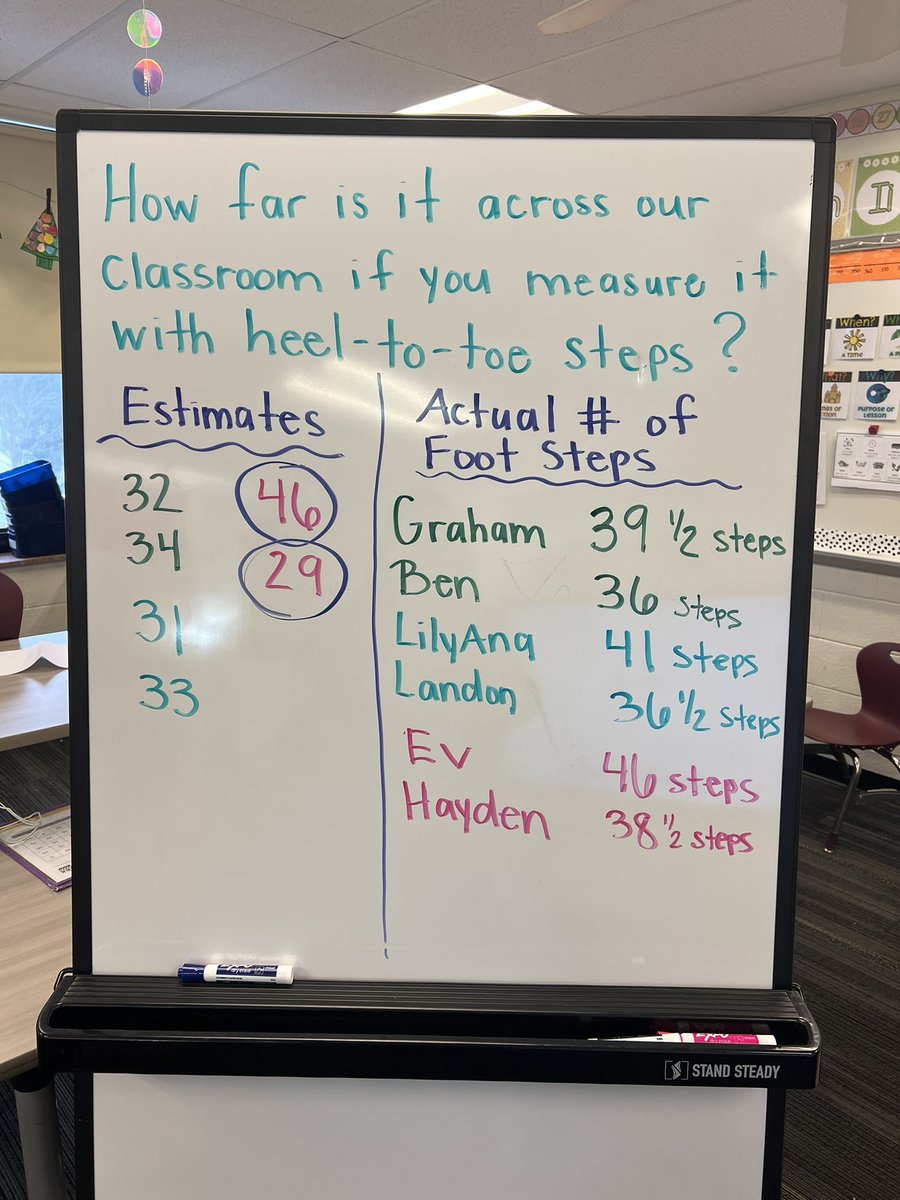 How far is it across our
classroom if you measure it
with heel-to-toe steps?
Estimates
32 46
34 29
31
33
Actual # of
Foot Steps
Graham 39 1/2 steps
Ben 36 steps
LilyAna 41 steps
Landon 36 1/2 steps
Ev 46 steps
Hayden 38 1/2 steps
EXPO
dry erase
EXPO
STAND STEADY
Ii
When?
A TIME
Why?
PURPOSE OF
LESSON